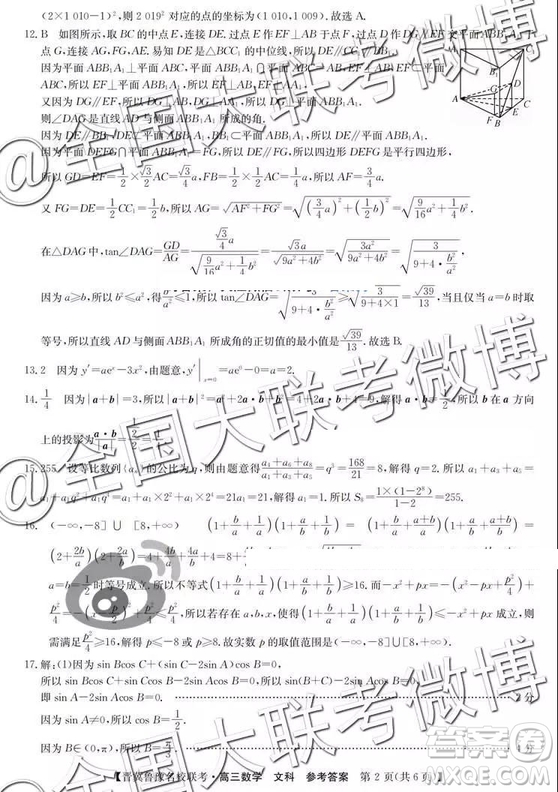 (2×1 010−1)²,则 2 019² 对应的点的坐标为(1 010,1 009).故选 A.
12. B 如图所示,取 BC 的中点 E,连接 DE.过点 E 作 EF⊥AB 于点 F,过点 D 作 DG∥EF 交平面 ABB₁A₁ 于
点 G,连接 AG,FG,AE.易知 DE 是△BCC₁ 的中位线,所以 DE∥CC₁∥BB₁∥AA₁
因为平面 ABB₁A₁⊥平面 ABC,平面 ABB₁A₁∩平面 ABC=AB,EF⊥AB,EF⊂平面
ABC,所以 EF⊥平面 ABB₁A₁,所以 EF⊥AB,EF⊥AA₁
又因为 DG∥EF,所以 DG⊥AB,DG⊥AA₁,所以 DG⊥平面 ABB₁A₁
则∠DAG 是直线 AD 与侧面 ABB₁A₁ 所成的角.
因为 DE∥BB₁,DE⊄平面 ABB₁A₁,BB₁⊂平面 ABB₁A₁,所以 DE∥平面 ABB₁A₁
因为平面 DEFG∩平面 ABB₁A₁=FG,所以 DE∥FG,所以四边形 DEFG 是平行四边形,
所以 GD=EF=1/2×√3/2 AC=√3/4 a,FB=1/2×1/2 AC=1/4 a,所以 AF=3/4 a.
又 FG=DE=1/2 CC₁=1/2 b,所以 AG=√(AF²+FG²)=√((3/4 a)²+(1/2 b)²)=√(9/16 a²+1/4 b²)
在△DAG 中,tan∠DAG=GD/AG=(√3/4 a)/√(9/16 a²+1/4 b²)=√3a/√(9a²+4b²)=√(3a²/(9a²+4b²))=√(3/(9+4·b²/a²)).
因为 a≥b,所以 b²≤a²,得 b²/a²≤1,所以 tan∠DAG=√(3/(9+4·b²/a²))≥√(3/(9+4×1))=√39/13,当且仅当 a=b 时取
等号,所以直线 AD 与侧面 ABB₁A₁ 所成角的正切值的最小值是√39/13.故选 B.
13. 2 因为 y′=aeˣ−3x²,由题意,y′|ₓ₌₀=ae⁰−0=a=2.
上的投影为
15. 255 设等比数列{aₙ}的公比为 q,则由题意得(a₄+a₆+a₈)/(a₁+a₃+a₅)=q³=168/21=8,解得 q=2.所以 a₁+a₃+a₅=
a₁+a₁q²+a₁q⁴=a₁+a₁×2²+a₁×2⁴=21a₁=21,解得 a₁=1.所以 S₈=1×(1−2⁸)/(1−2)=255.
16. (−∞,−8]∪[8,+∞) (1+b/a+1/a)(1+a/b+1/b)=(1+b/a+(a+b)/a)(1+a/b+(a+b)/b)=
a=b=1/2时等号成立,所以不等式(1+b/a+1/a)(1+a/b+1/b)≥16.而−x²+px=−(x−p/2)²+p²/4
≤p²/4,所以若存在正实数 a,b,x,使得(1+b/a+1/a)(1+a/b+1/b)≤−x²+px 成立,则
需满足 p²/4≥16,解得 p≤−8 或 p≥8.故实数 p 的取值范围是(−∞,−8]∪[8,+∞).
17. 解:(1)因为 sin Bcos C+(sin C−2sin A)cos B=0,
所以 sin Bcos C+sin Ccos B−2sin Acos B=0,所以 sin(B+C)−2sin Acos B=0,
即 sin A−2sin Acos B=0.
2 分
因为 sin A≠0,所以 cos B=1/2.
因为 B∈(0,π),所以 B=π/3.
【晋冀鲁豫名校联考·高三数学 文科 参考答案 第 2 页(共 6 页)】
@全国大联考微博
@全国大联考微博
@全国大联考微博